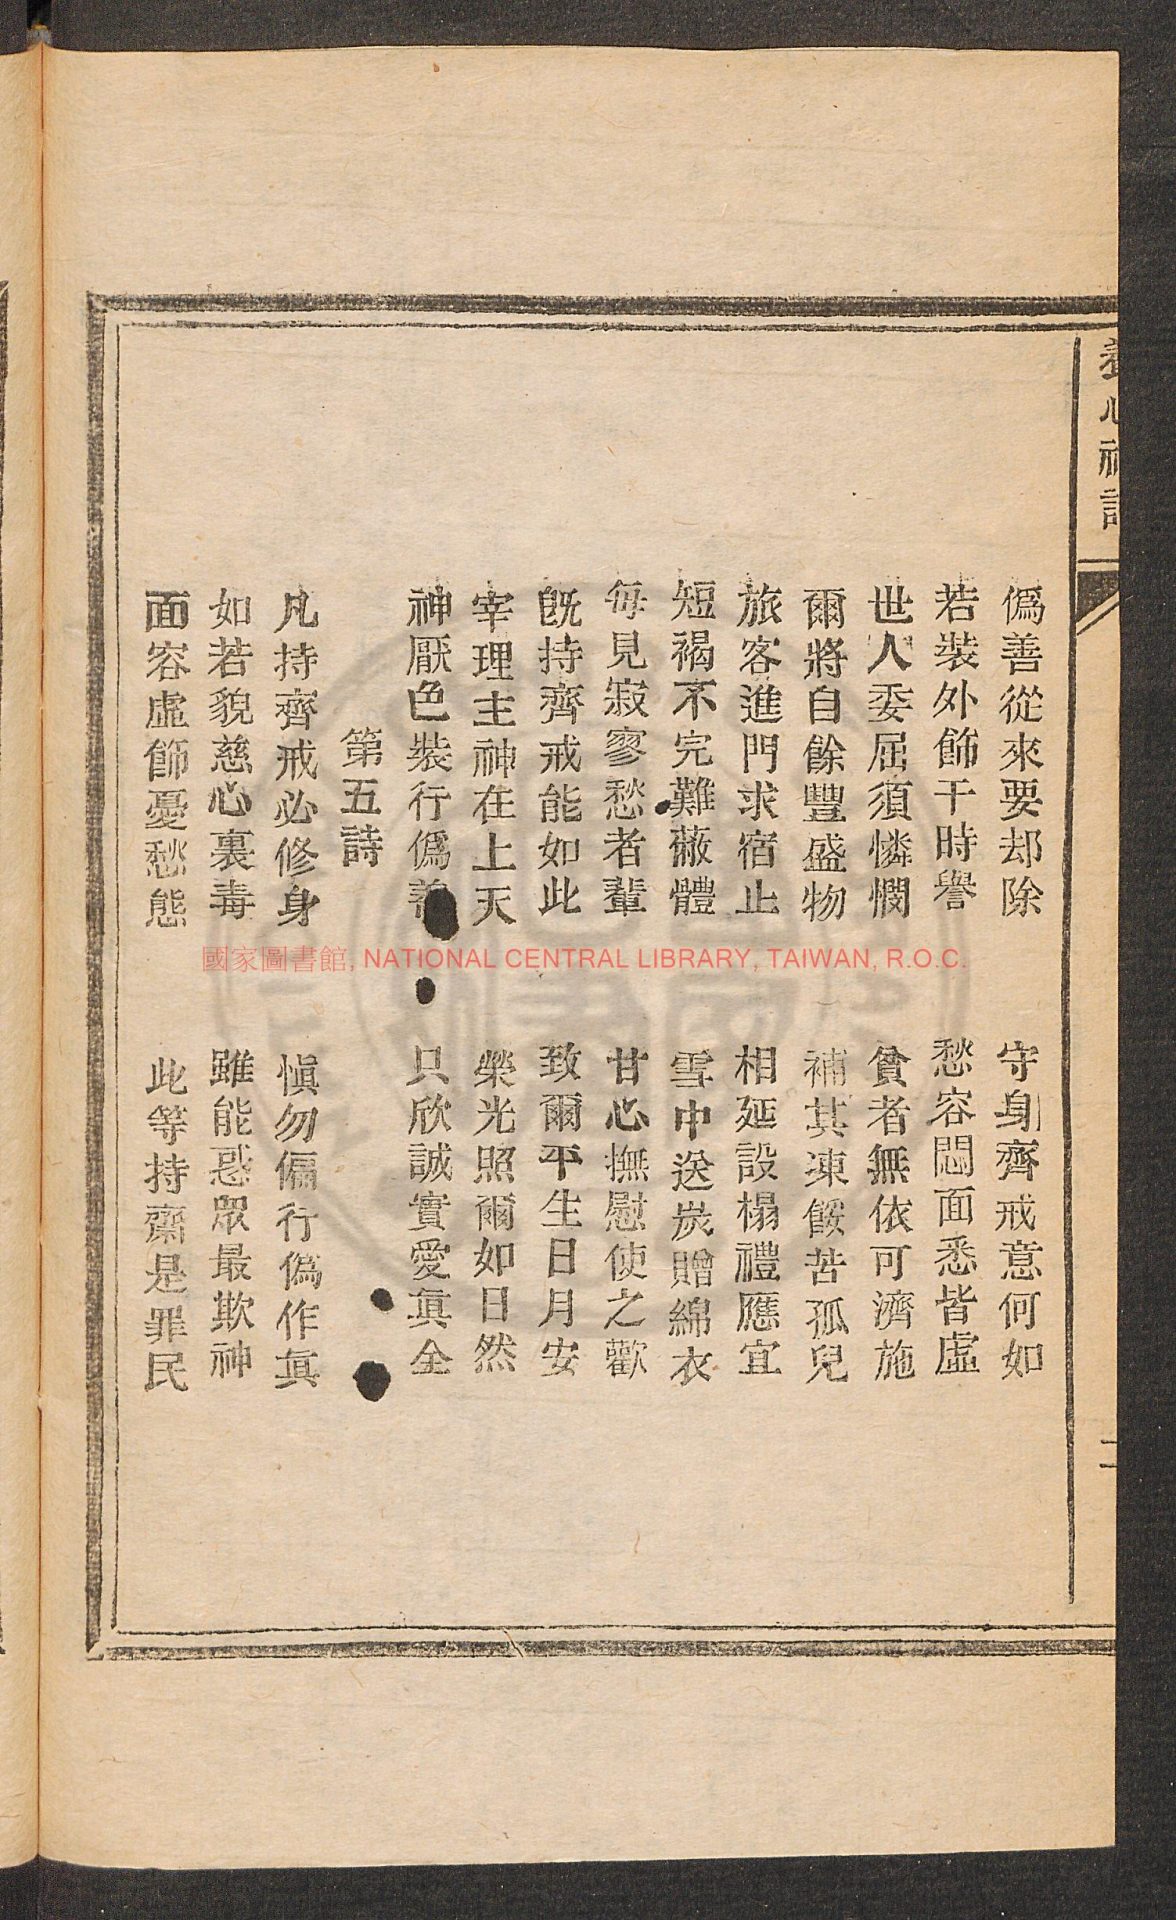 養心神詩
僞善從來要却除　守身齊戒意何如
若裝外飾干時譽　愁容悶面悉皆虛
世人委屈須憐憫　貧者無依可濟施
爾將自餘豐盛物　補其凍餒苦孤兒
旅客進門求宿止　相延設榻禮應宜
短褐不完難蔽體　雪中送炭贈綿衣
每見寂寥愁者輩　甘心撫慰使之歡
旣持齊戒能如此　致爾平生日月安
宰理主神在上天　榮光照爾如日然
神厭色裝行僞善　只欣誠實愛眞全
第五詩
凡持齊戒必修身　愼勿偏行僞作眞
如若貌慈心裏毒　雖能惑眾最欺神
面容虛飾憂愁態　此等持齋是罪民
國家圖書館, NATIONAL CENTRAL LIBRARY, TAIWAN, R.O.C.